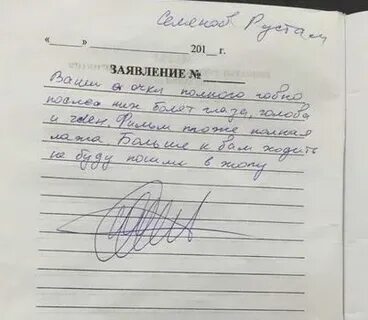 Семенов Рустам
«____» ________ 201__ г.
ЗАЯВЛЕНИЕ №____
Ваши очки полного говно
после них болят глаза, голова
и член. Фильм тоже полная
лажа. Больше к вам ходить
не буду пошли в жопу